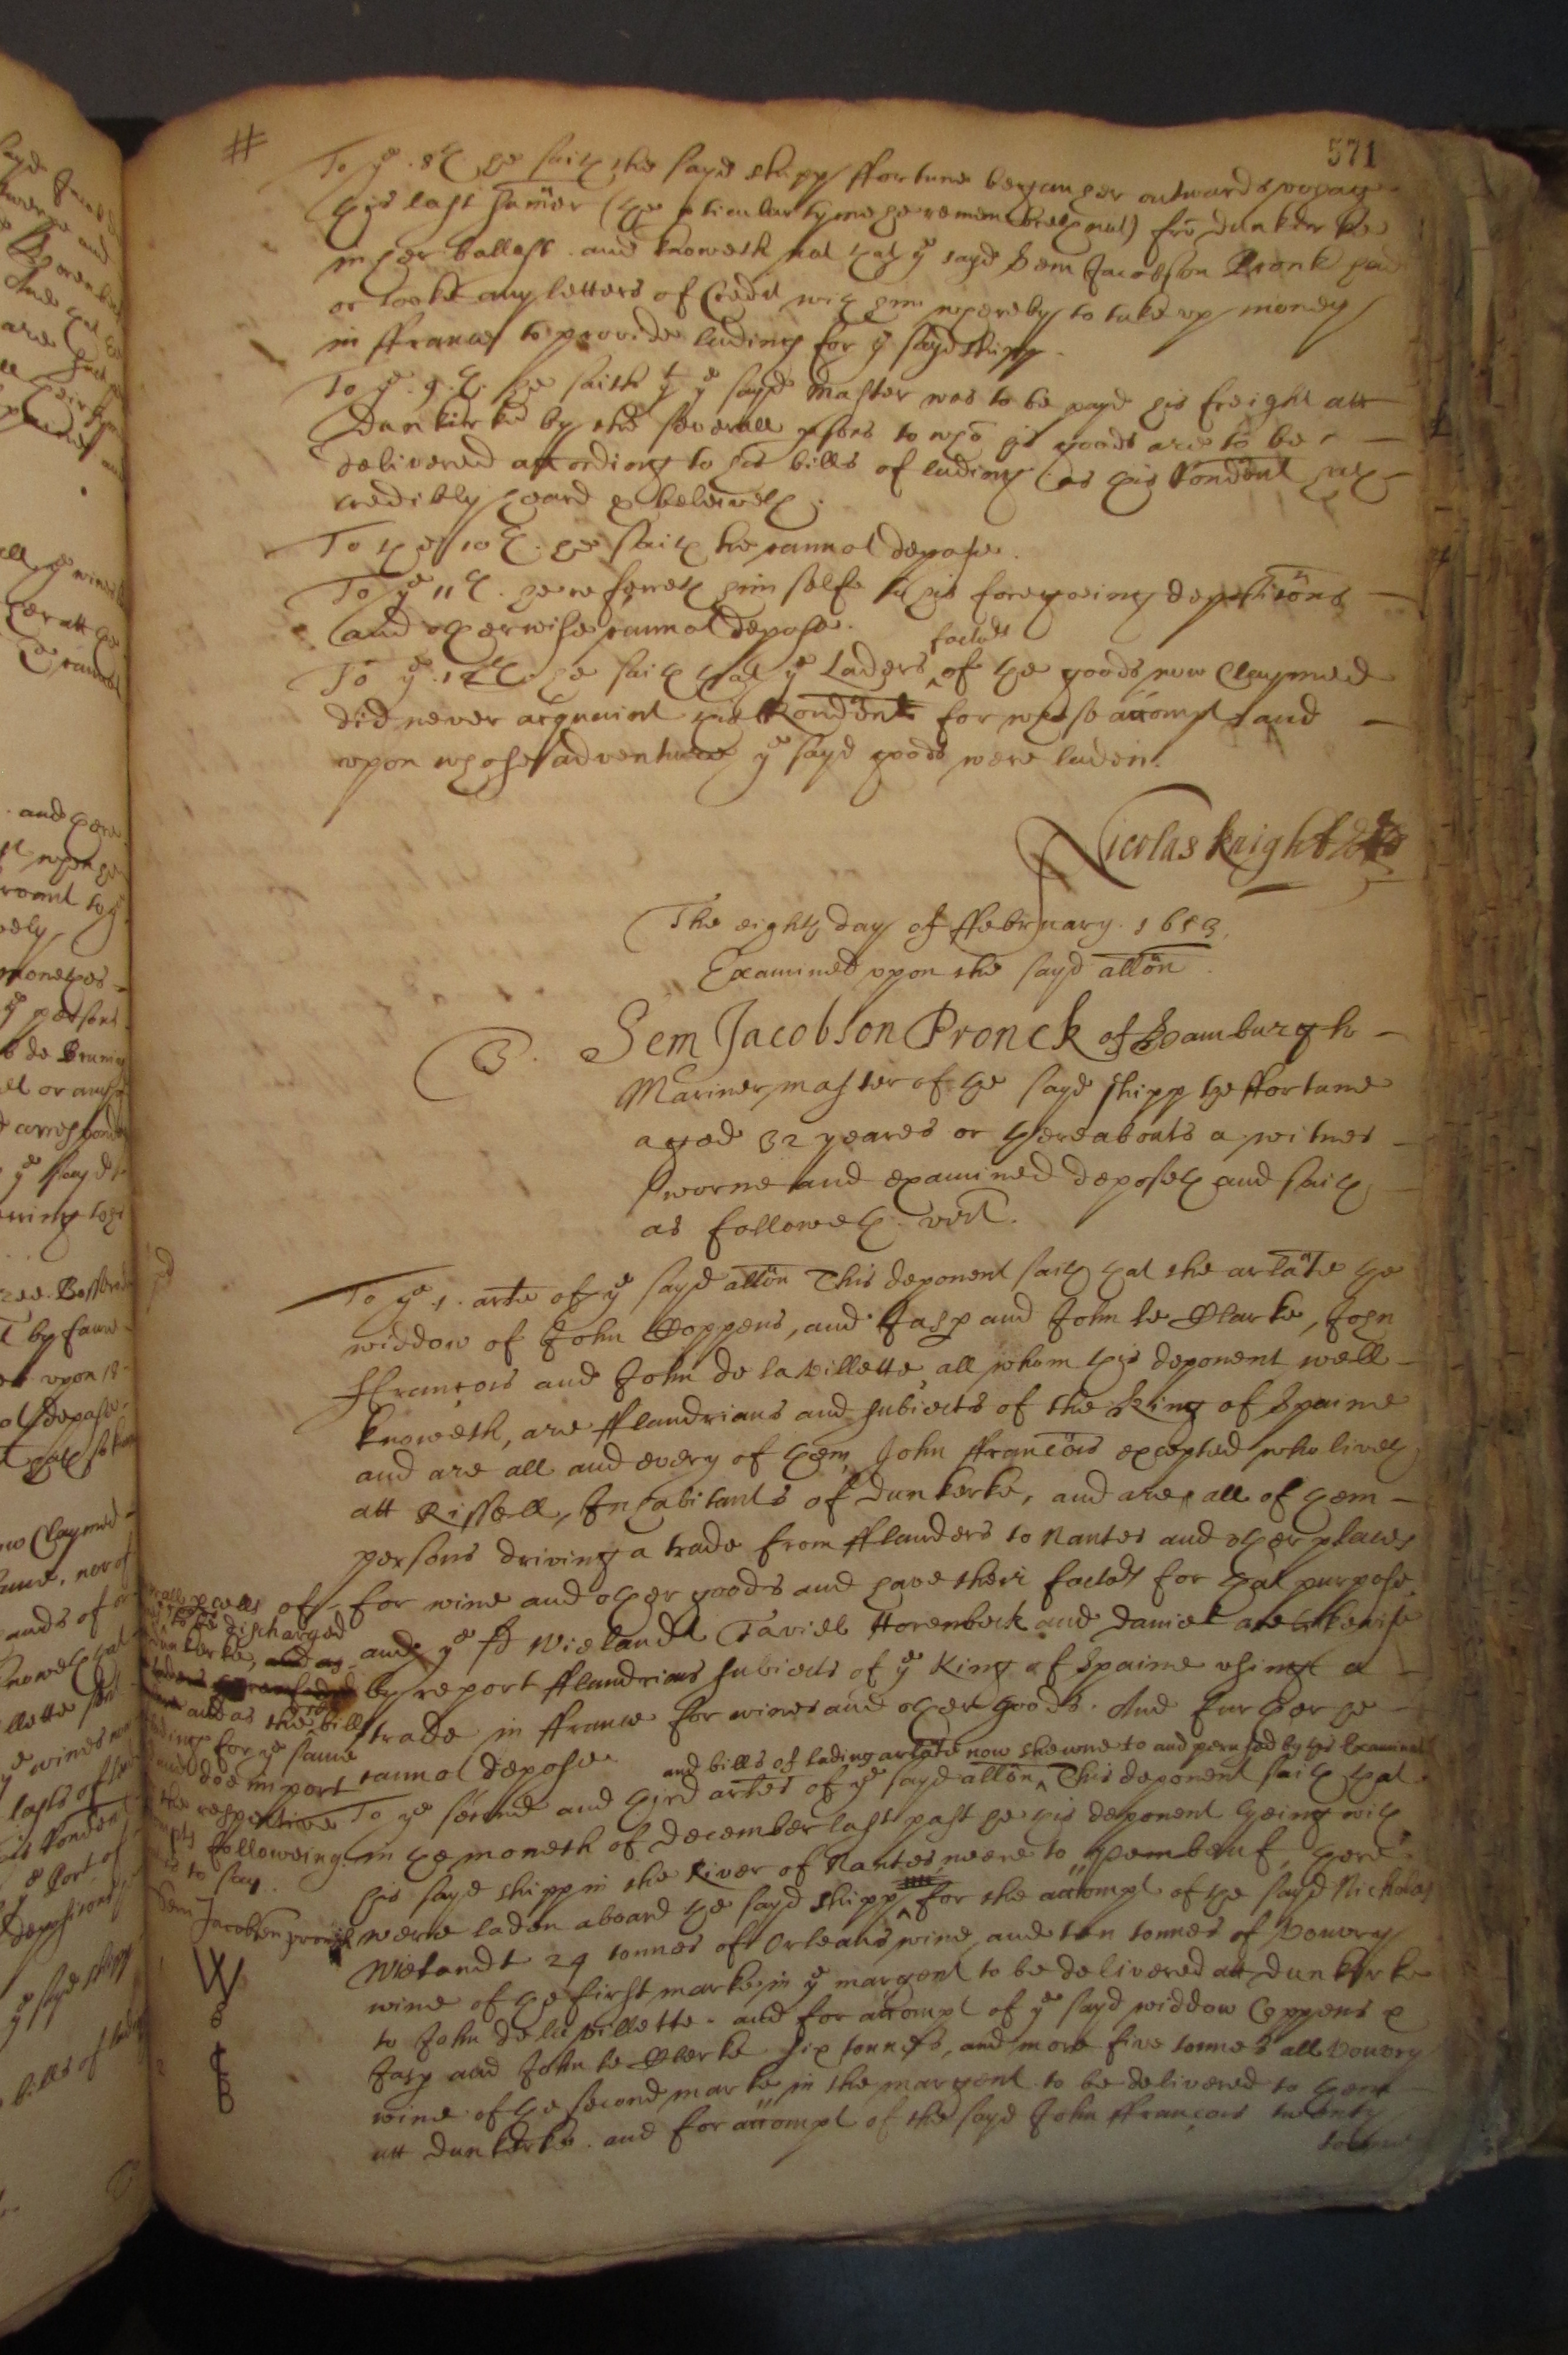 571
To ye. 8th. he saith the sayd shipp ffortune began her outward voyage
this last sum̃er (the pticular tyme he remembreth not) frõ dunkerke
in her ballast. and knoweth not that ye sayd Sem Jacobson Pronk had
or tooke any letters of Credit with him whereby to take up money
in ffrance to provide lading for ye sayd shipp.
To ye. 9. th. he saith yt ye sayd Master was to be payd his freight att
Dunkirke by the severall psons to whõ ye goods are to be
delivered according to his bills of lading as this Rondent hath
credibly heard & beleiveth.
To the 10th. he saith he cannot depose.
To ye 11th. he referreth himselfe to his foregoeing depositions
and otherwise cannot depose.
To ye. 12th. he saith that ye Laders factors of the goods now Claymed
did never acquaint this Rondent for whose accompt and
upon whose adventure ye sayd goods were laden.
Nicolas knight
The eighth day of ffebruary. 1653.
Examined upon the sayd allõn.
3. Sem Jacobson Pronck of Hamburgh
Mariner, master of the sayd shipp the ffortune
aged 32 yeares or thereabouts a witnes
sworne and examined deposeth and saith
as followeth. vizt.
To ye. 1. arłe of ye sayd allõn This deponent saith that the arłate the
widdow of John Coppens, and Jasp and John le Clarke, John
ffrançois and John de la Villette, all whom this deponent well
knoweth, are fflandrians and subiects of the King of Spaine
and are all and every of them, John ffrançois excepted who liveth
att Rissell, Inhabitants of dunkerke, and are all of them
persons driving a trade from fflanders to Nantes and other places
for wine and other goods and have their factors for that purpose.
and ye sd Wielandt Taviel Horenbeck and Daniel are likewise
by report fflandrians subiects of ye King of Spaine using a
trade in ffrance for wines and other goods. And further he
cannot depose.
and bills of lading arłate now shewne to and perused by this Examinat
To ye second and third arłes of ye sayd allõn, This deponent saith that
in the moneth of December last past he this deponent lyeing with
his sayd shipp in the River of Nantes, neere to Penbeuf, there
were laden aboard the sayd shipp, for the accompt of the sayd Nicholas
Wielandt 24 tonnes of Orleans wine and ten tonnes of Vouvry
wine of the first marke in ye margent to be delivered att dunkerke
to John de la Villette. and for accompt of ye sayd widdow Coppens &
Jasp and John le Clerke six tonnes, and more five tonnes all Vouvry
wine of the second marke in the margent to be delivered to them
att dunkerke. and for accompt of the sayd John ffrançois twenty
tonnes
pcells of
to be discharged
dunkerke, and as
and as the bills
lading for ye same
doe import
the respective
followeing
to say.
Sem Jacobsen pronck
W
B